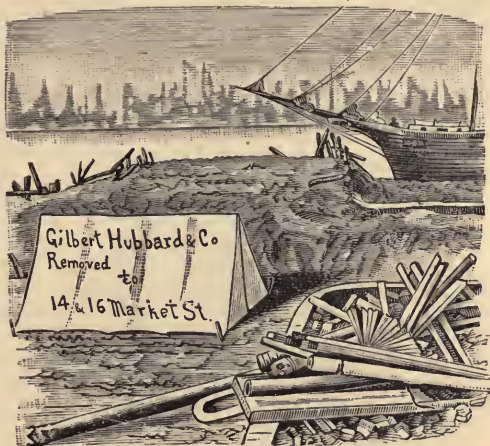 Gilbert Hubbard & Co
Removed
to
14 & 16 Market St.